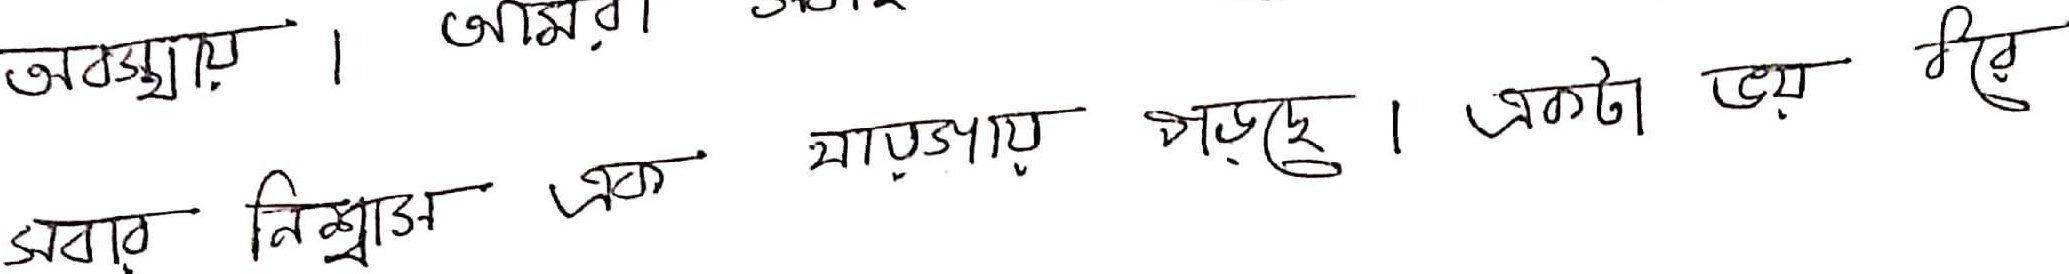 অবস্থায়। আমরা
সবার নিশ্বাস এক যায়গায় পড়ছে। একটা ভয় ধীরে